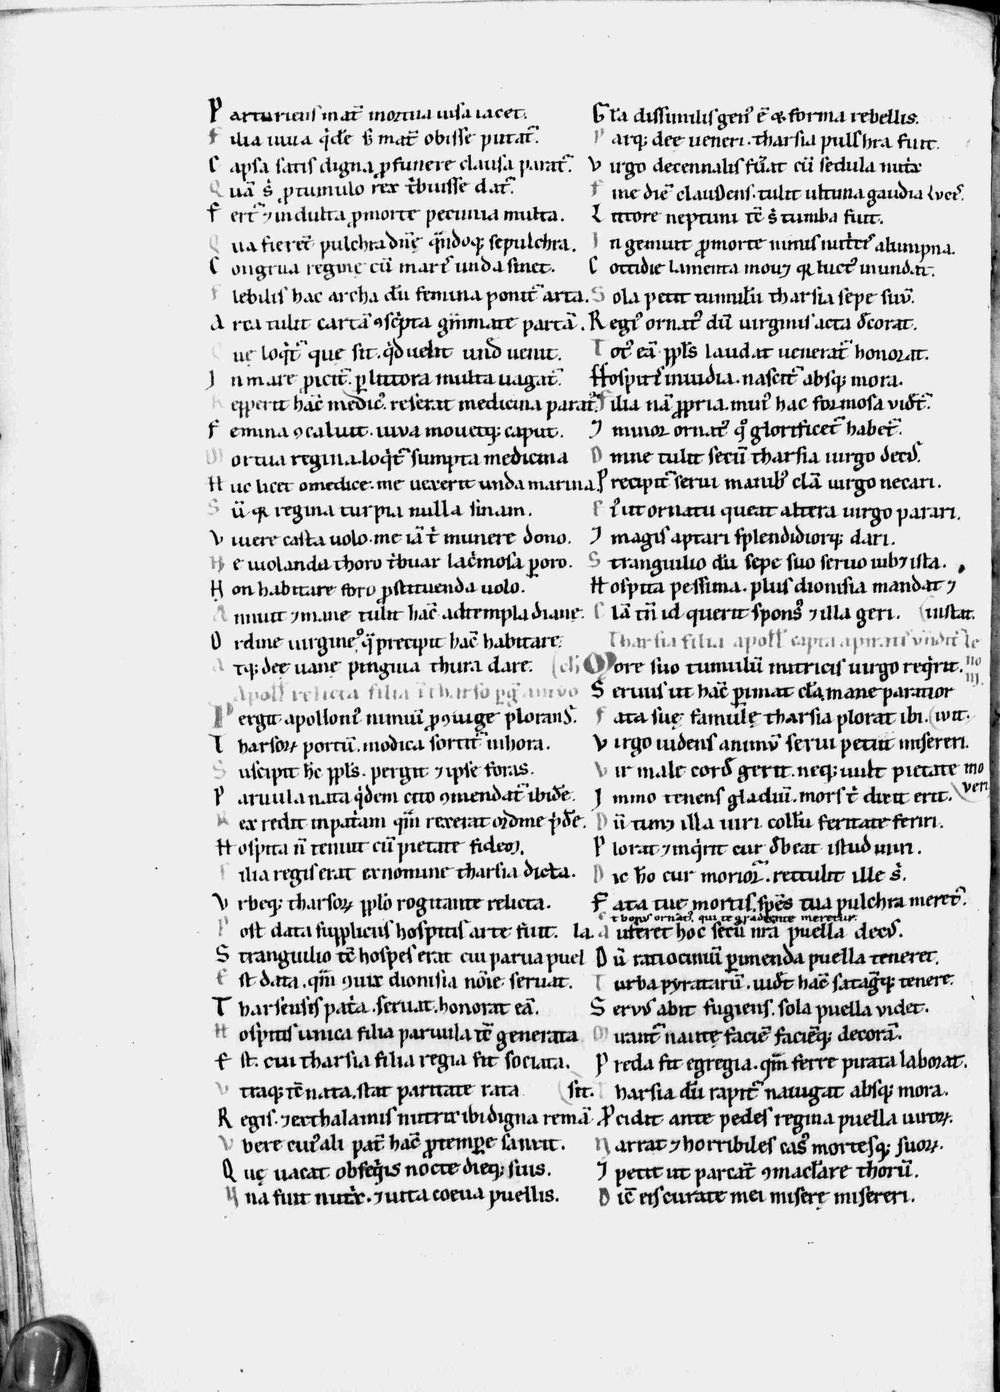 Parturiens mat̄ mortua uisa iacet.
Filia uiua q̇dē s; mat̄ obisse putat̄.
Capsa satis digna ꝓ funere clausa parat̄.
Quā s̄ ꝓ tumulo rex t̄buisse dat̄.
Fert̄ ⁊ indulta ꝓ morte pecunia multa.
Qua fieret̄ pulchra diu̅ę q̄ndoq; sepulchra.
Congrua reginę cū mar̄ unda sinet.
Flebilis hac archa dū femina ponit̄ arta.
Arca tulit cartā ꝯsc̄pta gm̄mate partā.
Quę loq̄t̄ que sit. q̇d uelit und uenit.
In mare ꝓicit̄. ꝑ littora multa uagat̄.
Repperit hāc medic᷒. reserat medicina parat᷒.
Femina ꝯcaluit. uiua mouetq; caput.
Mortua regina. loq̄t̄ sumpta medicina
Huc licet o medice. me uexerit unda marina
Sū ꝙ regina turpia nulla sinam.
Viuere casta uolo. me iā t̄ munere dono.
Ne uiolanda thoro t̄buar lac̄mosa ꝑoro.
Non habitare foro ꝓstituenda uolo.
Annuit ⁊ mane tulit hāc ad templa dianę.
Ordine uirgineo q̄ precipit hāc habitare.
Atq; deę uanę pinguia thura dare.
Apoll̄ relicta filia ī tharso
Pergit apolloni᷒ nimiū ꝓ ꝯiuge plorans.
Tharsoꝝ portū. modica sortit̄ in hora.
Suscipit hc̄ ppl̄s. pergit ⁊ ipse foras.
Paruula nata q̇dem cito ꝯmendat̄ ibidē.
Rex redit in patriam quā rexerat ordine pridē.
Hospita n̄ tenuit cū pietate fidem.
Filia regis erat ex nomine tharsia dicta.
Vrbeq; tharsoꝝ ppl̄o rogitante relicta.
Post data supplicius hospitis arte fuit.
Stranguilio tē hospes erat cui parua puella.
Est data. quā ꝯiux dionisia nōīe seruat.
Tharsensis pat̄a. seruat. honorat eā.
Hospitis unica filia paruula tē generata
Est. cui tharsia filia regia fit sociata.
Vtraq; tē nata. stat paritate rata
Regis. ⁊ ex thalamis nutrix ibi digna remāsit.
Vbere cui᷒ ali pat̄ hāc ꝓ tempe sanxit.
Quę uacat obseq̇is nocte dieq; suis.
Vna fuit nutx̄. ⁊ iuncta coeua puellis.
Gr̄a dissimilis gen᷒ ē ꝙ forma rebellis.
Parq; deę ueneri. tharsia pulchra fuit.
Virgo decennalis fūat cū sedula nutx̄
Fine diē claudens. tulit ultima gaudia lucē.
Littore neptuni tē s̄ tumba fuit.
Ingemuit ꝓ morte nimis nut̄c᷒ alumpna.
Cottidie lamenta mouꝫ ꝙ luct᷒ inundat.
Sola petit tumulū tharsia sepe suū.
Regi᷒ ornat᷒ dū uirginis acta decorat.
Tot᷒ eā ppl̄s laudat uenerat̄ honorat.
Hospit̄ inuidia. nascit̄ absq; mora.
Filia nā ꝓpria. min᷒ hac formosa uidet̄.
I minor ornat᷒ q̊ glorificet̄ habet̄.
Omne tulit secū tharsia uirgo dec᷒.
Precipit̄ serui manib᷒ clā uirgo necari.
Fr᷒ ut ornatu queat altera uirgo parari.
I magis aptari splendidiorq; dari.
Stranguilio dū sepe suo seruo iubꝫ ista.
Hospita pessima. plus dionisia mandat ⁊ instat.
Clā tn̄ id querit spons᷒ ⁊ illa geri.
Tharsia filia apoll̄ capta a piratis
More suo tumulū nutricis virgo req̇rit.
Seruus ut hāc ꝑimat clā. mane paratior iuit.
Fata suę famulę tharsia plorat ibi.
Virgo uidens animū serui petiit misereri.
Vir male cord gerit. neq; uult pietate moueri
Immo tenens gladiū. mors t̄ dixit erit.
Dū tim; illa uiri collū feritate feriri.
Plorat ⁊ inq̇rit cur debeat istud inuri.
Dic h̊o cur morior. rettulit ille s̄.
Fata tue mortis. spēs tua pulchra meret᷒.
Et bonus ornat᷒, qui te gradiente meretur.
Auferet hoc secū nr̄a puella dec᷒.
Dū ratiociniū ꝑimenda puella teneret.
Turba pyratarū. uidt hāc satagitq; tenere.
Seruus abit fugiens. sola puella videt.
Mirant̄ nautę faciē faciēq; decorā.
Preda fit egregia. quā ferre pirata laborat.
Tharsia dū rapit̄ nauigat absq; mora.
Procidit ante pedes regina puella uiroꝝ.
Narrat ⁊ horribiles cas᷒ mortesq; suoꝝ.
I petit ut parcāt ꝯmaclare thorū.
Dic̄ eis curate mei miserę misereri.